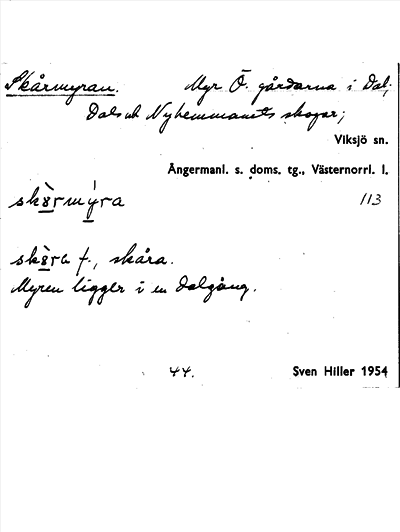 Skårmyran. Myr Ö. gårdarna i Dal;
Dals och Nyhemmanets skogar;
Viksjö sn.
Ångermanl. s. doms. tg., Västernorrl. l.
113
skåra f., skåra.
Myren ligger i en dalgång.
44. Sven Hiller 1954